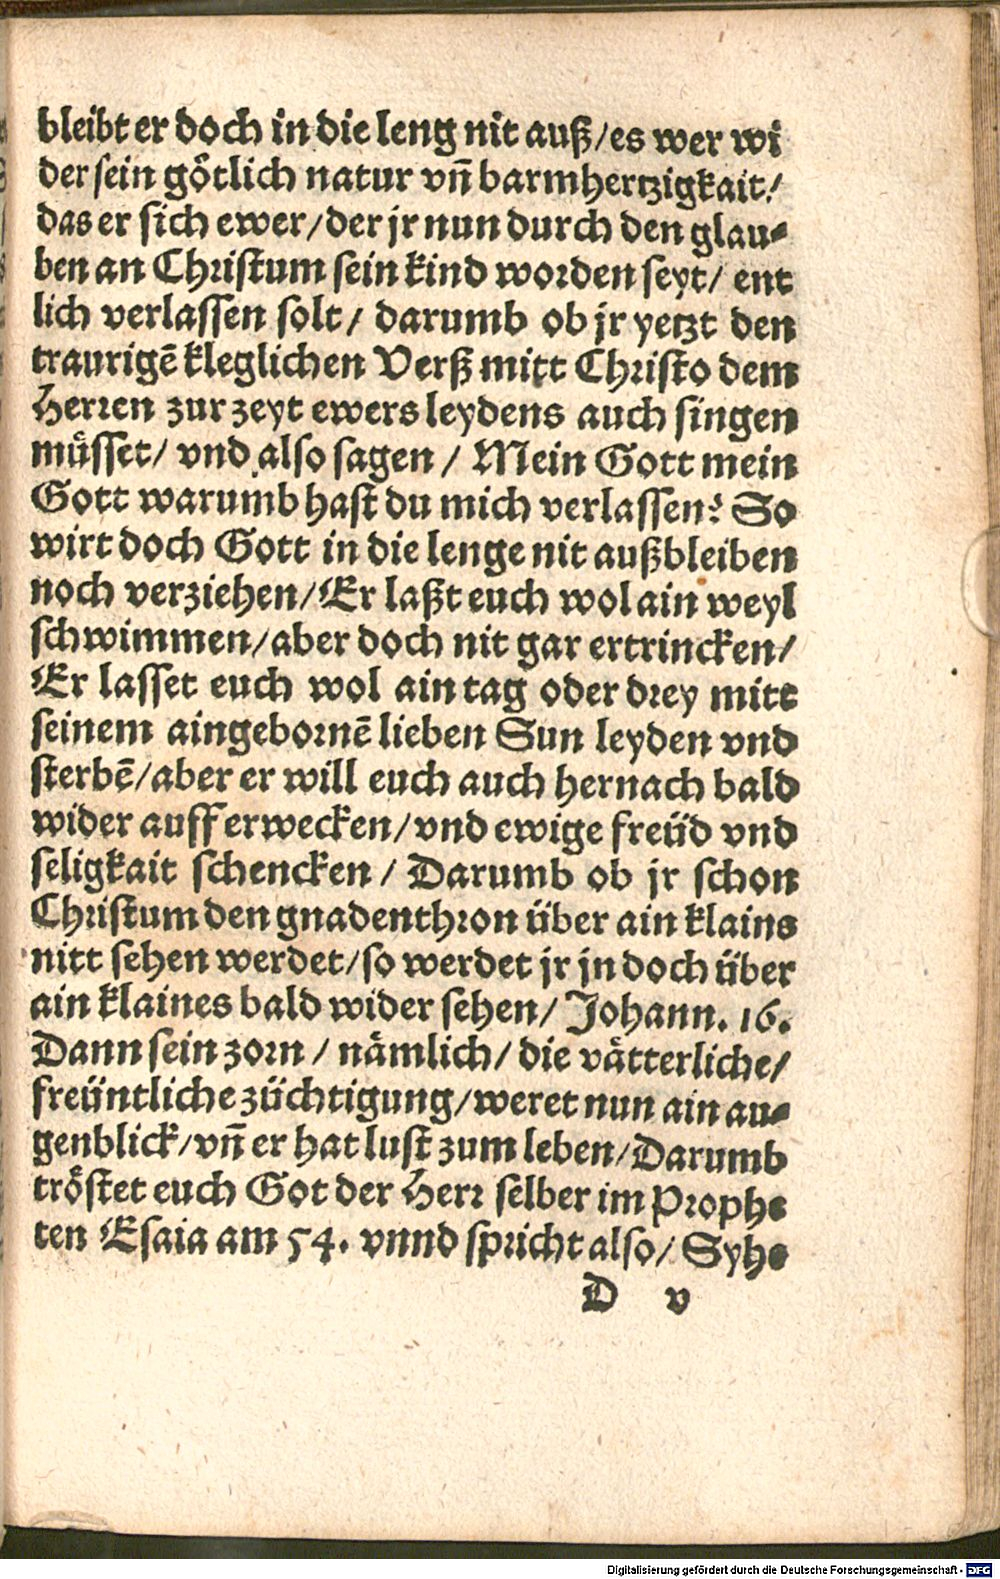 bleibt er doch in die leng nit auß/es wer wi
der sein götlich natur vñ barmhertzigkait/
das er sich ewer/der jr nun durch den glau⸗
ben an Christum sein kind worden seyt/ ent
lich verlassen solt/ darumb ob jr yetzt den
traurigẽ kleglichen Verß mitt Christo dem
Herren zur zeyt ewers leydens auch singen
müsset/ vnd also sagen / Mein Gott mein
Gott warumb hast du mich verlassen? So
wirt doch Gott in die lenge nit außbleiben
noch verziehen/Er laßt euch wol ain weyl
schwimmen/aber doch nit gar ertrincken/
Er lasset euch wol ain tag oder drey mitt
seinem aingebornẽ lieben Sun leyden vnd
sterbẽ/aber er will euch auch hernach bald
wider auff erwecken/vnd ewige freüd vnd
seligkait schencken / Darumb ob jr schon
Christum den gnadenthron über ain klains
nitt sehen werdet/so werdet jr jn doch über
ain klaines bald wider sehen/ Johann. 16.
Dann sein zorn / nämlich/ die vätterliche/
freüntliche züchtigung/weret nun ain au⸗
genblick/vñ er hat lust zum leben/Darumb
tröstet euch Got der Herr selber im Prophe
ten Esaia am 54. vnnd spricht also/ Syhe
D v
Digitalisierung gefördert durch die Deutsche Forschungsgemeinschaft - DFG